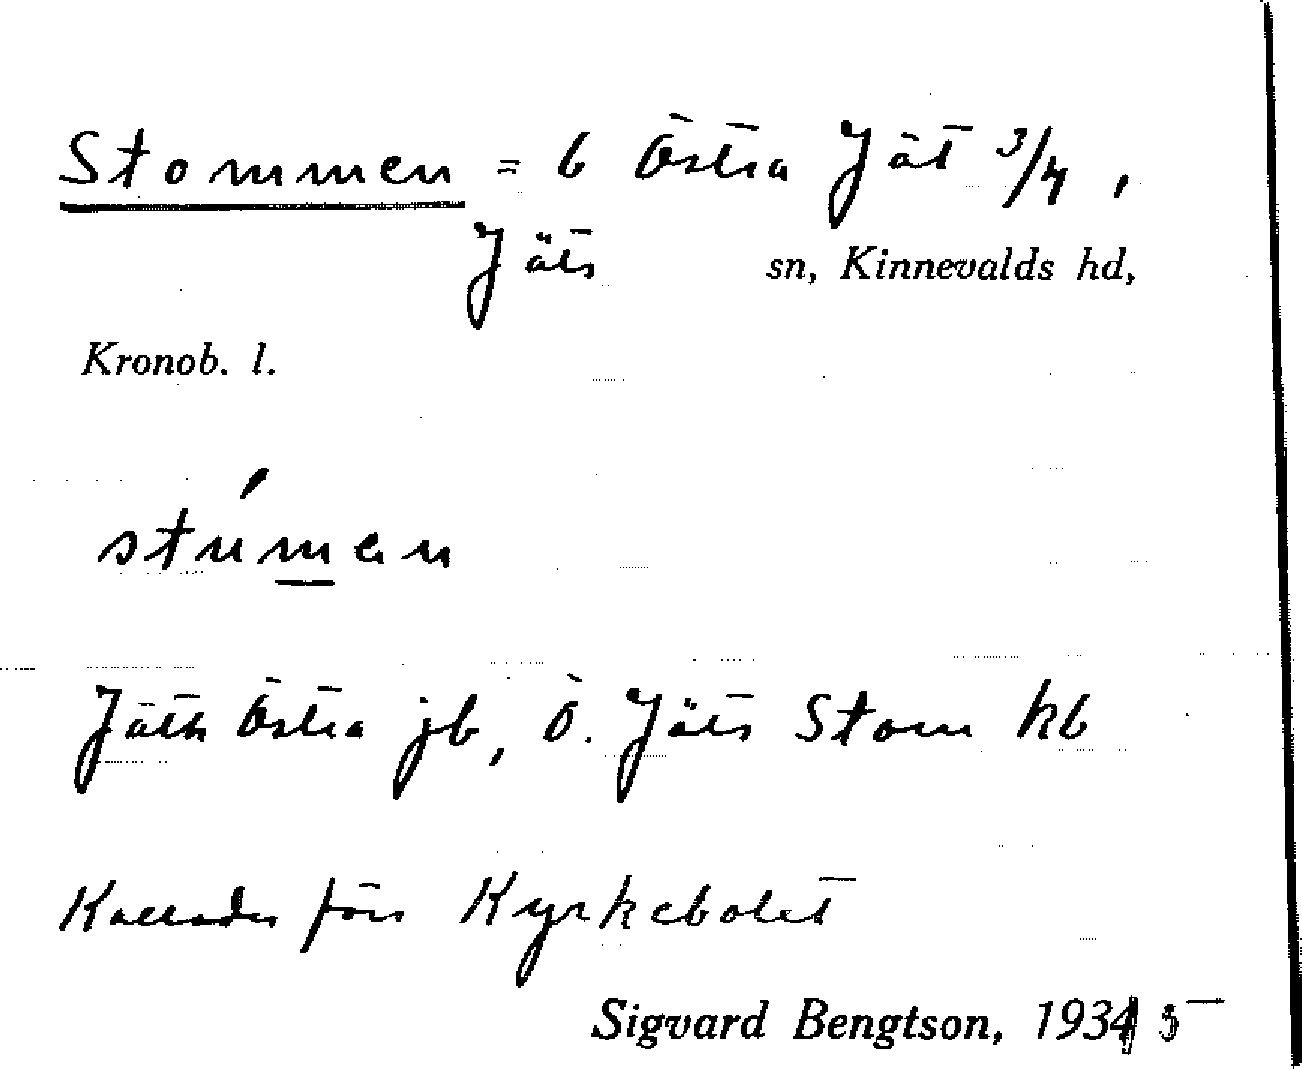 Stommen = 6 Östra Jät 3/4,
Jäts sn, Kinnevalds hd,
Kronob. l.
stúmen
Jäth Östra jb, Ö. Jäts Stom kb
Kallades förr Kyrkebolet
Sigvard Bengtson, 1934 5